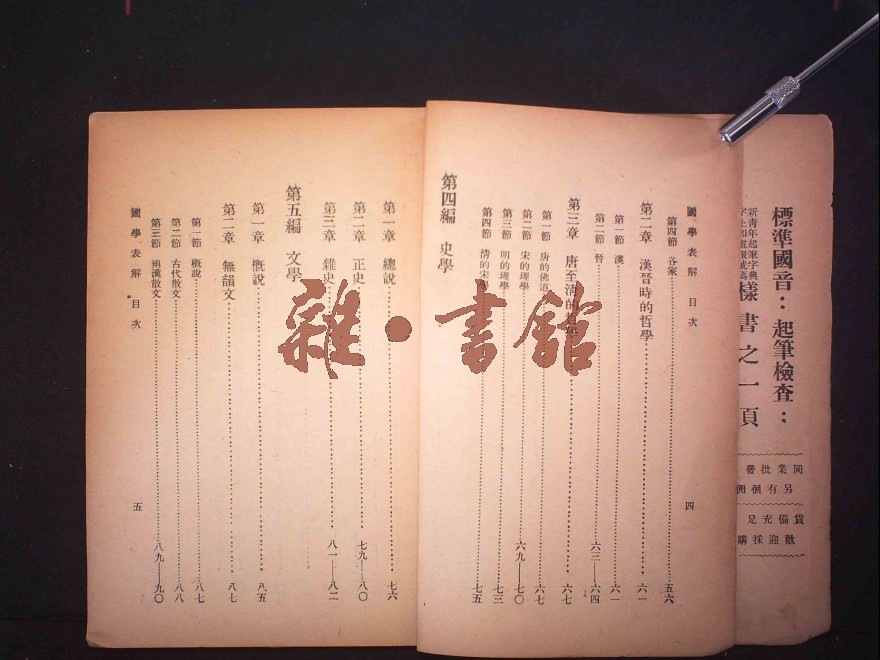 標準國音：起筆檢查：
新青年起筆字典
樣書之一頁
同業批發
另有佣
貨備充足
歡迎採購
國學表解 目次
四
第四節 各家………五六
第二章 漢晉時的哲學………六一
第一節 漢………六一
第二節 晉………六三—六四
第三章 唐至清的………六七
第一節 唐的佛道………六七
第二節 宋的理學………六九—七〇
第三節 明的理學………七三
第四節 清的宋………七五
第四編 史學
第一章 總說………七六
第二章 正史………七九—八〇
第三章 雜史………八一—八二
第五編 文學
第一章 概說………八五
第二章 無韻文………八七
第一節 概說………八七
第二節 古代散文………八八
第三節 兩漢散文………八九—九〇
國學表解 目次
五
雜·書館